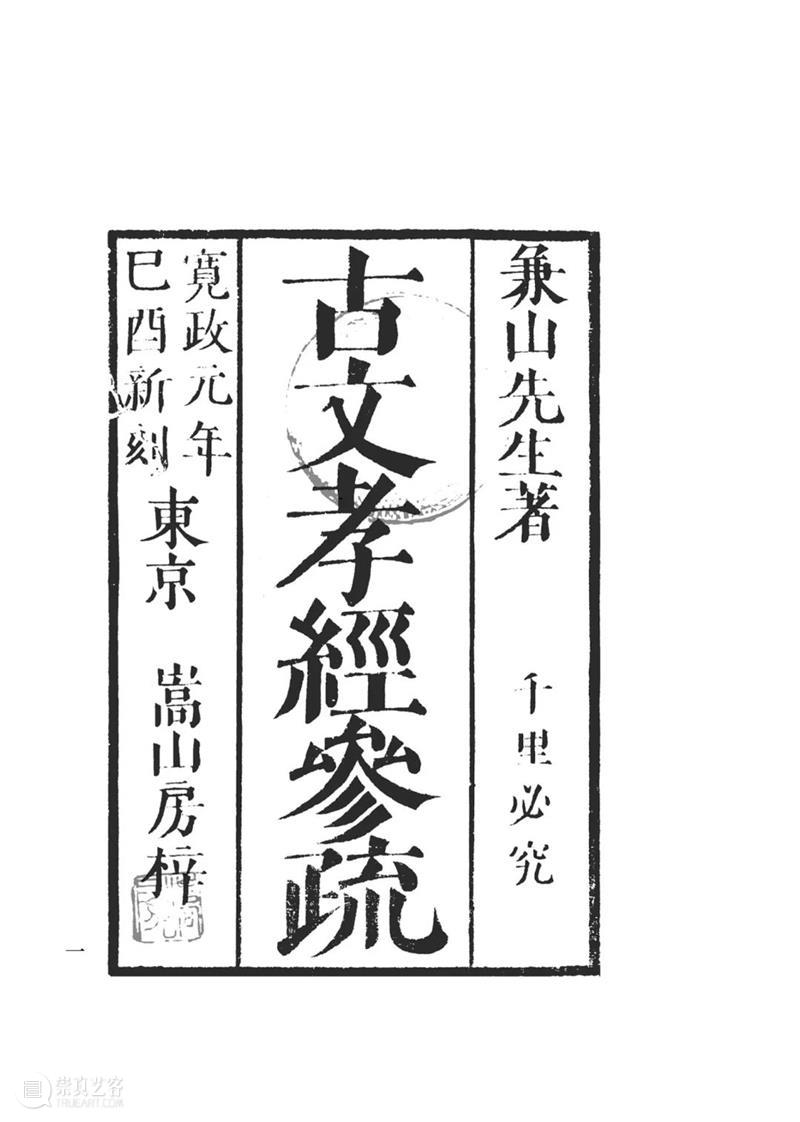 兼山先生著　千里必究
古文孝經參疏
寬政元年
巳酉新刻
東京　嵩山房梓
一
崇真艺客
TRUEART.COM